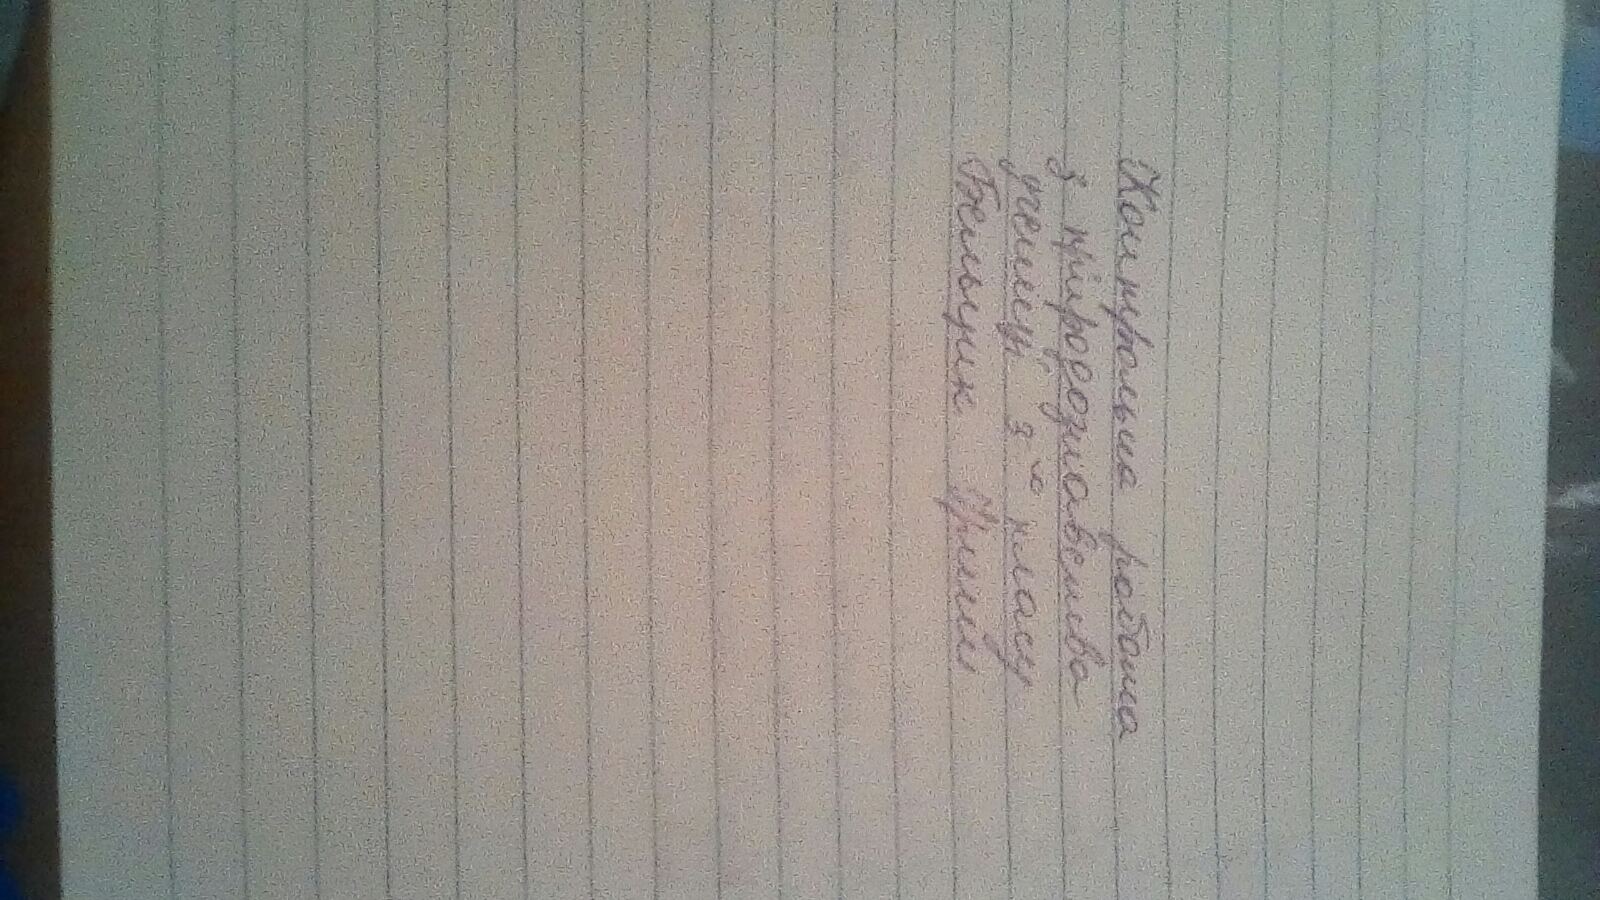 Контрольна робота
з природознавства
учениці 3-го класу
Бельчик